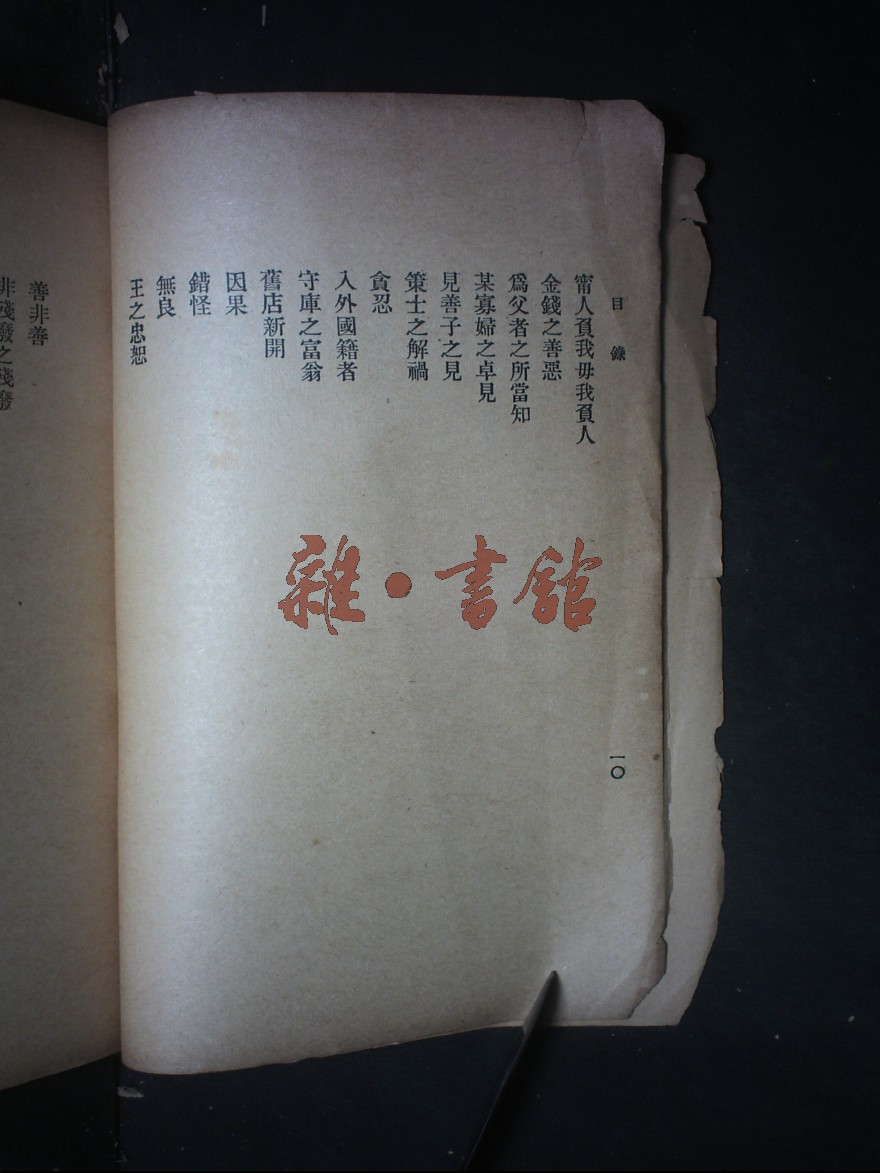 目錄
甯人負我毋我負人
金錢之善惡
爲父者之所當知
某寡婦之卓見
見善子之見
策士之解禍
貪忍
入外國籍者
守庫之富翁
舊店新開
因果
錯怪
無良
王之忠恕
一〇
善非善
非殘廢之殘廢
雜·書館